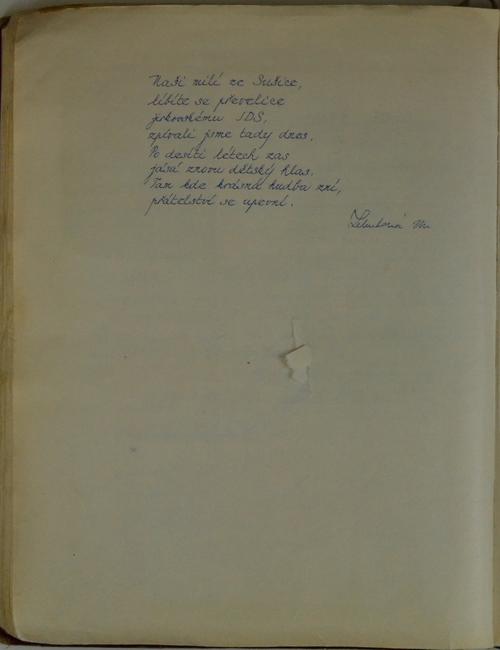 Naši milí ze Sušice,
líbíte se převelice
jirkovskému SDS,
zpívali jsme tady dnes.
Po desíti létech zas
jásá znovu dětský hlas.
Tam kde krásná hudba zní,
přátelství se upevní.